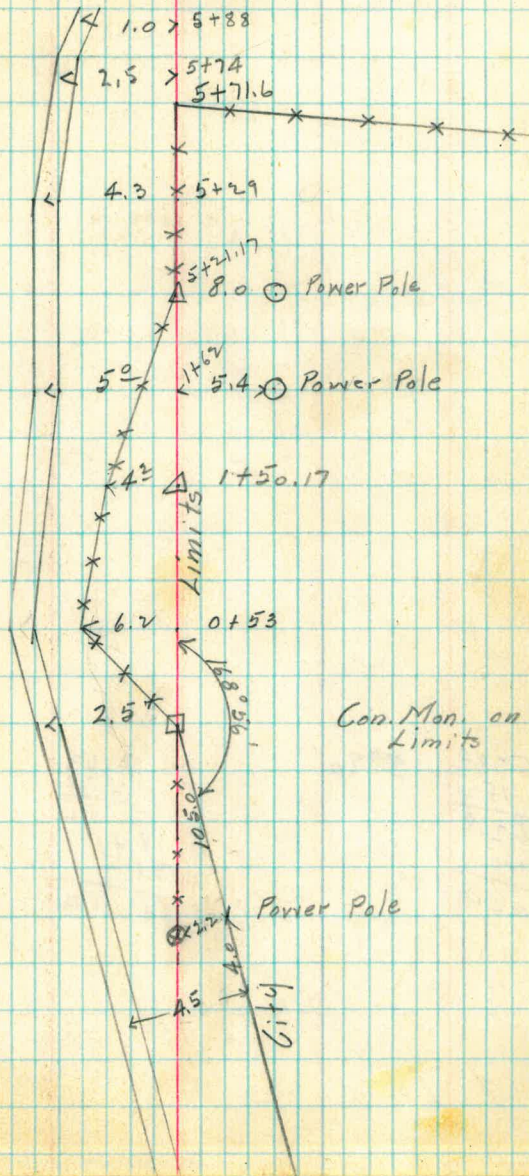 1.0 > 5+88
2.5 > 5+74
5+71.6
4.3 5+29
5+21.17
8.0 Power Pole
1+62
5⁰ 5.4 Power Pole
4² 1+50.17
Limits
6.2 0+53
168°56'
2.5 Con. Mon. on
Limits
105.0
Power Pole
2.2
4.0
4.5
City